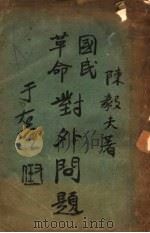 陳毅夫著
國民
革命
對外問題
于右